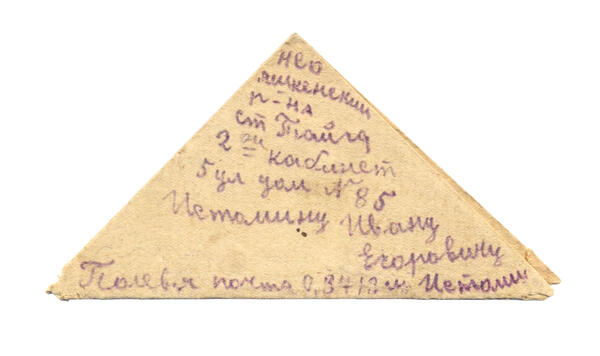 нсо
яшкенский
р-на
ст Тайга
2ой каблнет
5 ул дом N 85
Истомину Ивану
Егоровичу
Полевья почта Истомин